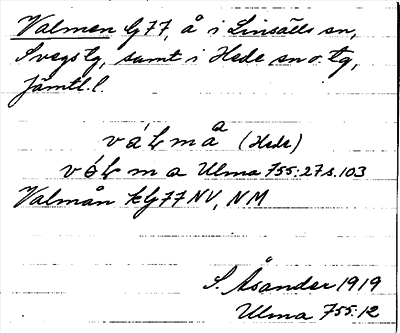 Valmen Gj 77, å i Linsälls sn,
Svegs tg, samt i Hede sn o. tg,
Jämtl. l.
válmå (Hede)
válma Ulma 755:27 s. 103
Valmån kGj 77 NV, NM
S. Åsander 1919
Ulma 755:12